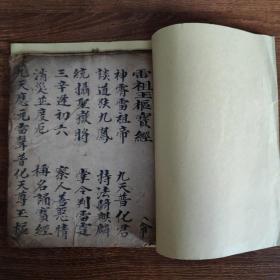 雷祖玉樞寶經
神霄雷祖帝 九天普化君
談道趺九鳳 持法跨麒麟
統攝星嶽將 掌令判雷霆
三辛逆初六 察人善惡情
消災並度厄 稱名誦寶經
九天應元雷聲普化天尊玉樞